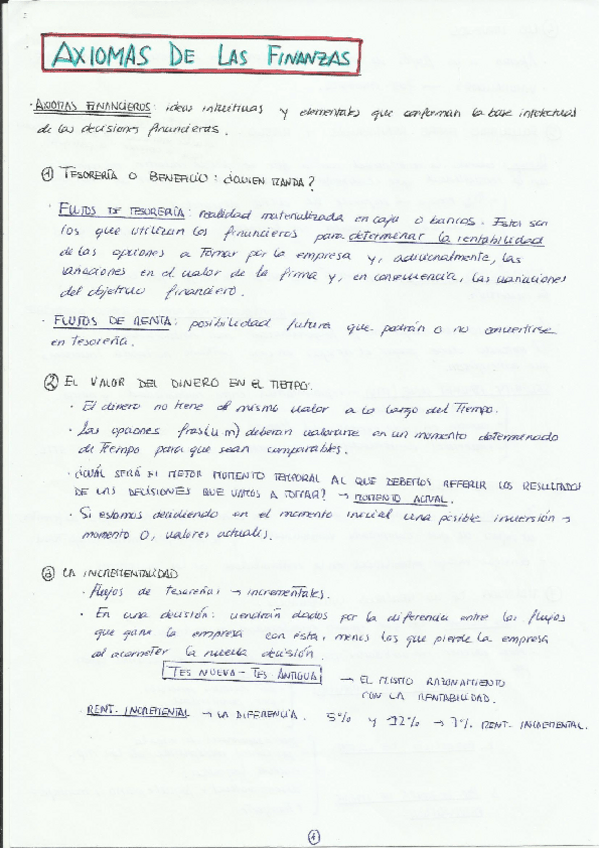 AXIOMAS DE LAS FINANZAS
· AXIOMAS FINANCIEROS: ideas intuitivas y elementales que conforman la base intelectual
de las decisiones financieras.
① TESORERÍA O BENEFICIO: ¿QUIEN MANDA?
· FLUJOS DE TESORERÍA: realidad materializada en caja o bancos. Estos son
los que utilizan los financieros para determinar la rentabilidad
de las opciones a tomar por la empresa y, adicionalmente, las
variaciones en el valor de la firma y, en consecuencia, las variaciones
del objetivo financiero.
· FLUJOS DE RENTA: posibilidad futura que podrán o no convertirse
en tesorería.
② EL VALOR DEL DINERO EN EL TIEMPO.
· El dinero no tiene el mismo valor a lo largo del Tiempo.
· Las opciones deberán valorarse en un momento determinado
de Tiempo para que sean comparables.
· ¿CUÁL SERÁ EL MEJOR MOMENTO TEMPORAL AL QUE DEBEMOS REFERIR LOS RESULTADOS
DE LAS DECISIONES QUE VAMOS A TOMAR? → MOMENTO ACTUAL.
· Si estamos decidiendo en el momento inicial una posible inversión →
momento 0, valores actuales.
③ LA INCREMENTALIDAD
· Flujos de tesorería → incrementales.
· En una decisión: vendrán dados por la diferencia entre los flujos
que gana la empresa con ésta, menos los que pierde la empresa
al acometer la nueva decisión.
TES NUEVA - TES ANTIGUA → EL MISMO RAZONAMIENTO
CON LA RENTABILIDAD.
· RENT. INCREMENTAL → LA DIFERENCIA. 5% y 12% → 7% RENT. INCREMENTAL.
1